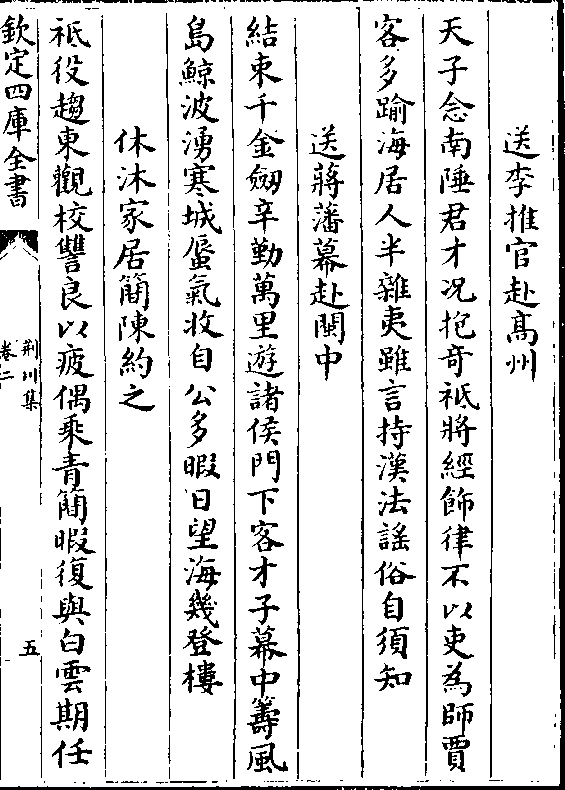 送李推官赴髙州
天子念南陲君才况抱竒祗將經飾律不以吏為師賈
客多踰海居人半雜夷雖言持漢法謡俗自須知
送蔣藩幕赴閩中
結束千金劒辛勤萬里遊諸侯門下客才子幕中籌風
島鯨波湧寒城蜃氣收自公多暇日望海幾登樓
休沐家居簡陳約之
祗役趨東觀校讐良以疲偶乘青簡暇復與白雲期任
欽定四庫全書
荆川集
卷二
五